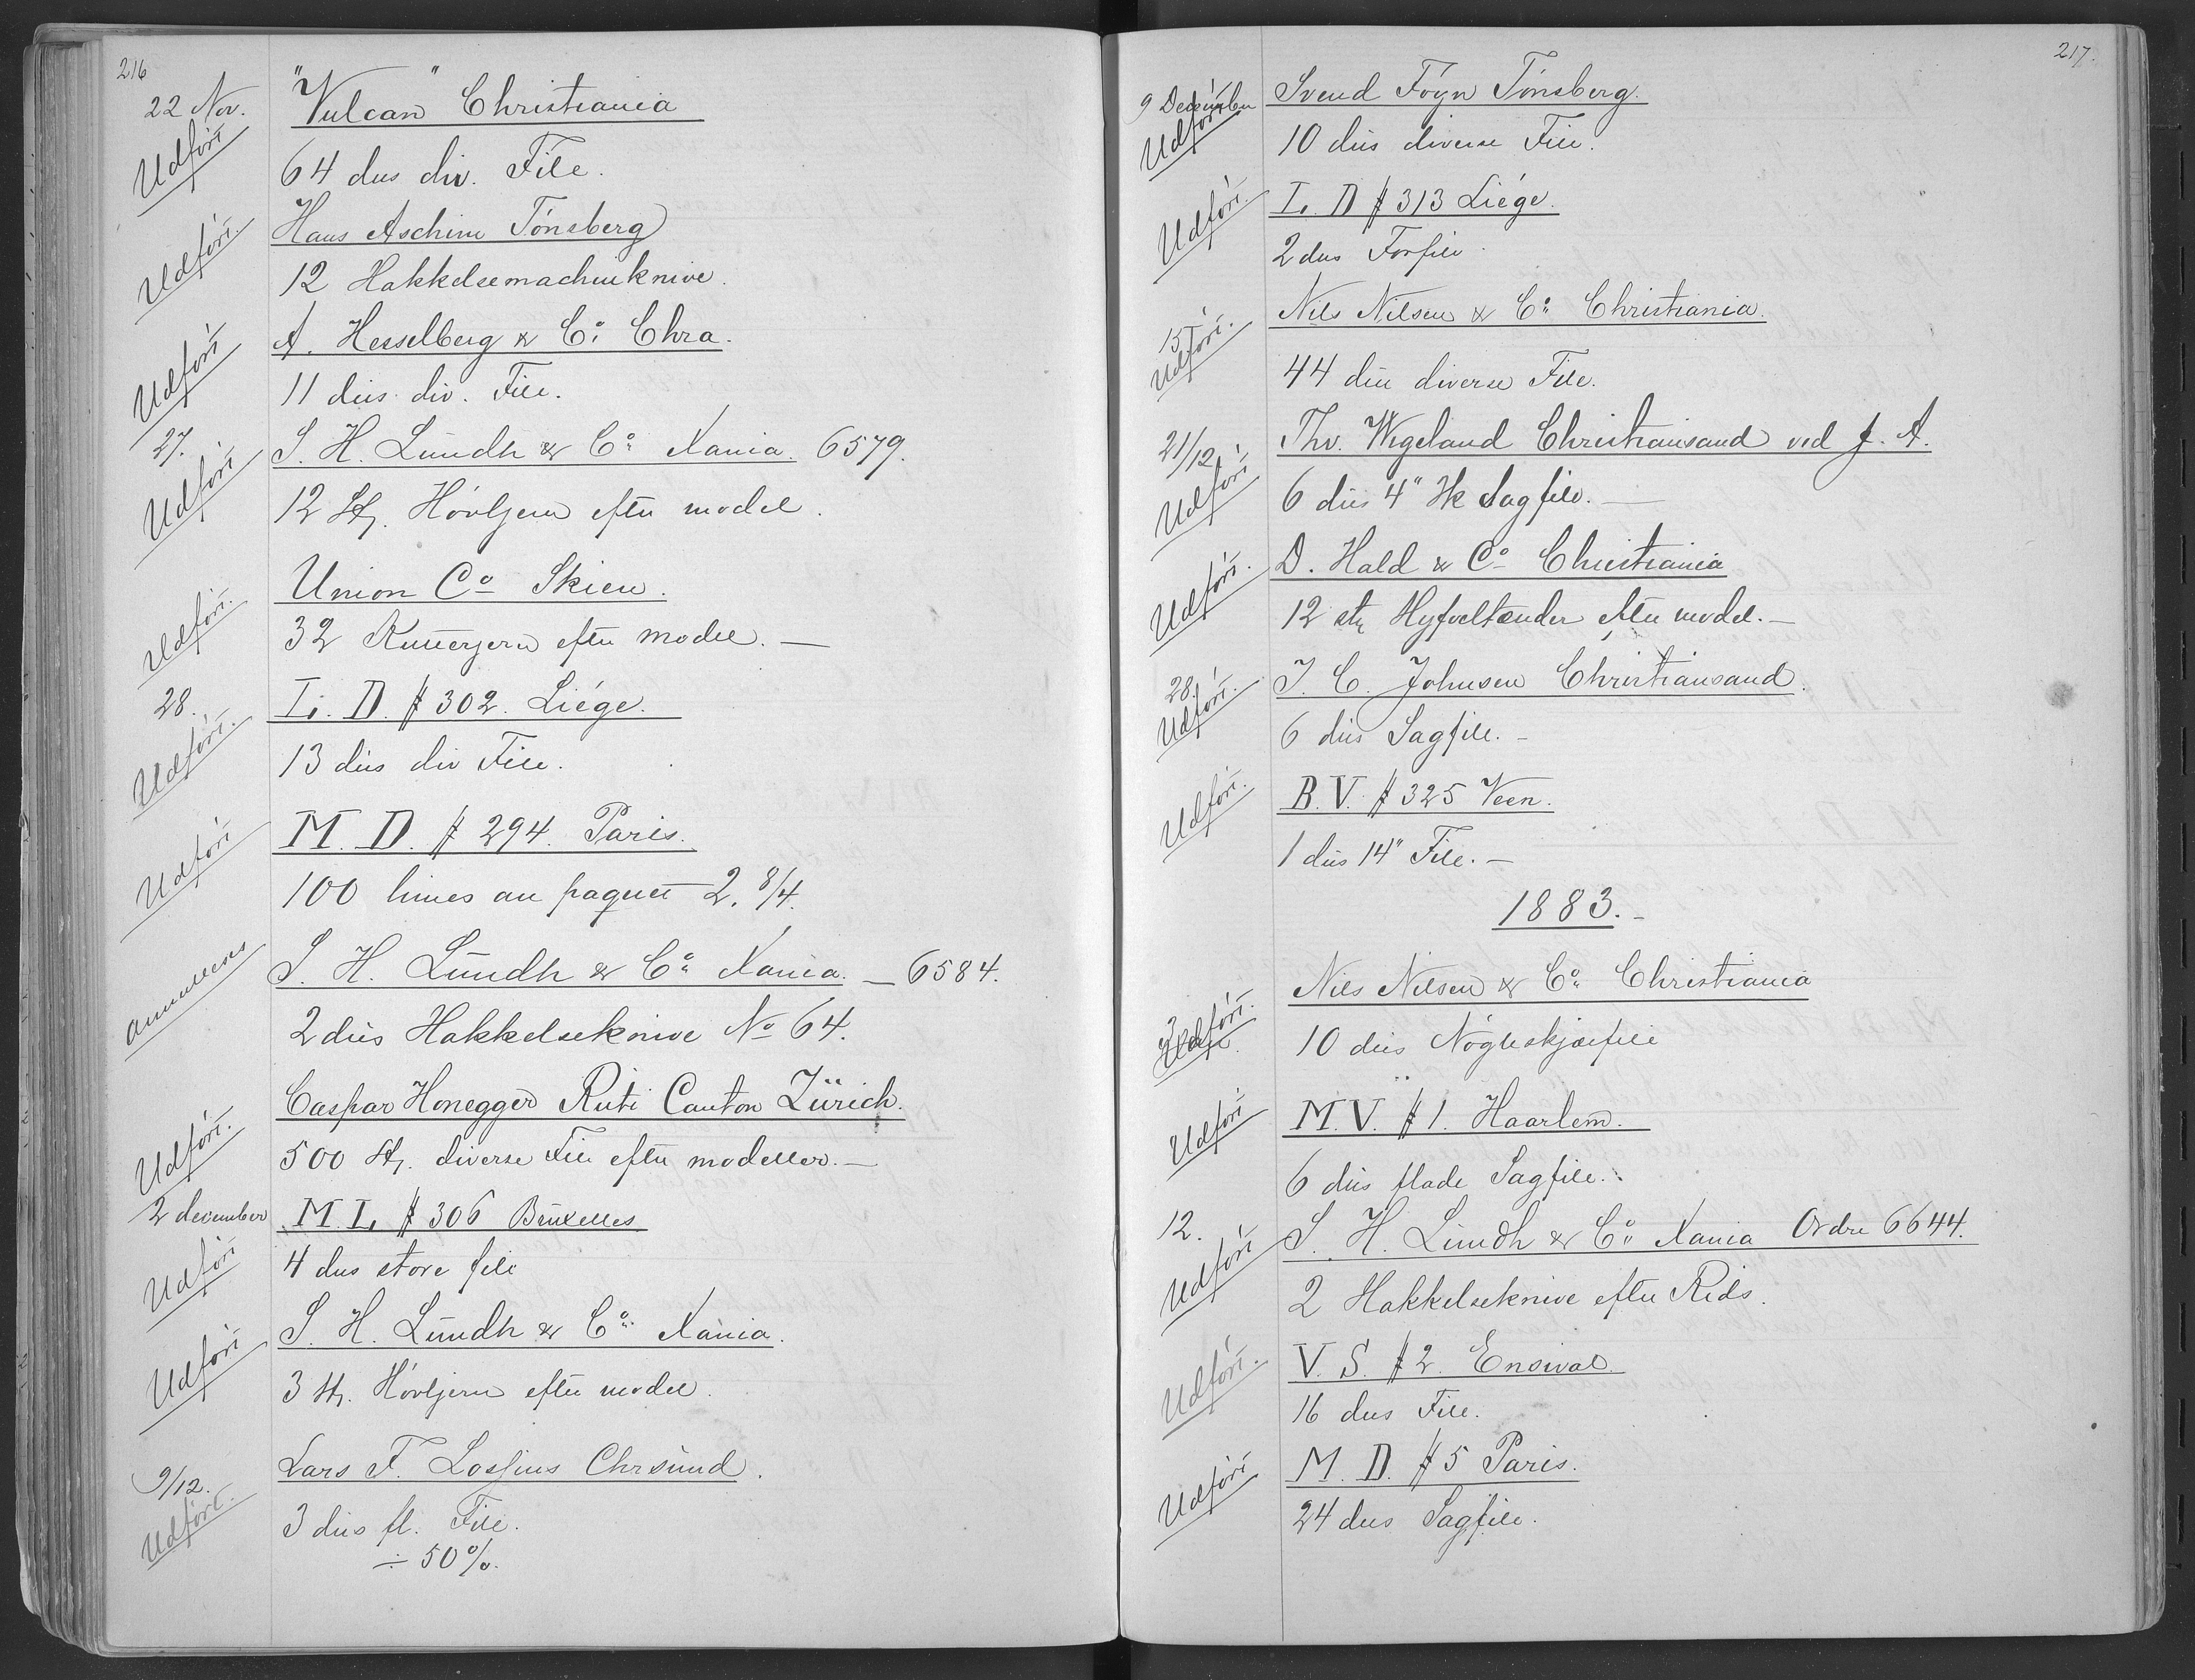 216
22 Nov. "Vulcan" Christiania
Udført 64 dus div. File.
Hans Aschim Tönsberg
Udført. 12 Hakkelsemachinknive.
A. Hesselberg & Co. Chra.
Udført 11 dus. div. File.
27. S. H. Lundh & Co. Xania. 6579.
Udført 12 St. Høvljern efter model.
Union Co Skien.
Udført. 32 Kutterjern efter model. —
28. L. D. # 302. Liége.
Udført. 13 dus div File.
M. D. # 294. Paris.
Udført 100 limes au paquet 2. 8/4.
S. H. Lundh & Co. Xania. — 6584.
annulleres 2 dus Hakkelseknive No 64.
Caspar Honegger Rüti Canton Zürich.
Udført. 500 St. diverse File efter modeller. —
2 december M. L. # 306 Bruxelles
Udført 4 dus store file
S. H. Lundh & Co. Xania.
Udført 3 st. Høvljern efter model.
9/12. Lars F. Lossius Chrsund.
Udført. 3 dus fl. File.
÷ 50%.
217.
9 December Svend Foyn Tönsberg.
Udført. 10 dus diverse File.
L. D # 313 Liége.
Udført. 2 dus Forfile.
15. Nils Nilsen & Co. Christiania.
Udført. 44 dus diverse File.
21/12 Thv. Wigeland Christiansand ved J. A.
Udført 6 dus 4" Hk Sagfile. —
D. Hald & Co Christiania
Udført. 12 st. tænder efter model. —
28. J. C. Johnsen Christiansand.
Udført. 6 dus Sagfile. —
B. V. # 325 Veen.
Udført. 1 dus 14" File. —
1883. —
Nils Nilsen & Co. Christiania
3 Udført. 10 dus Nögleskjærfile
M. V. # 1. Haarlem.
Udført 6 dus flade Sagfile.
12. S. H. Lundh & Co. Xania Ordre 6644.
Udført 2 Hakkelseknive efter Rids.
V. S. # 2. Ensival.
Udført. 16 dus File.
M. D. # 5 Paris.
Udført 24 dus Sagfile.